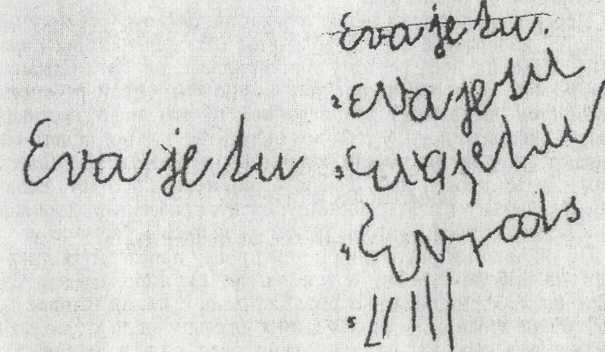 Eva je tu
Eva je tu.
2 Eva je tu
3 Eva je tu
4
5